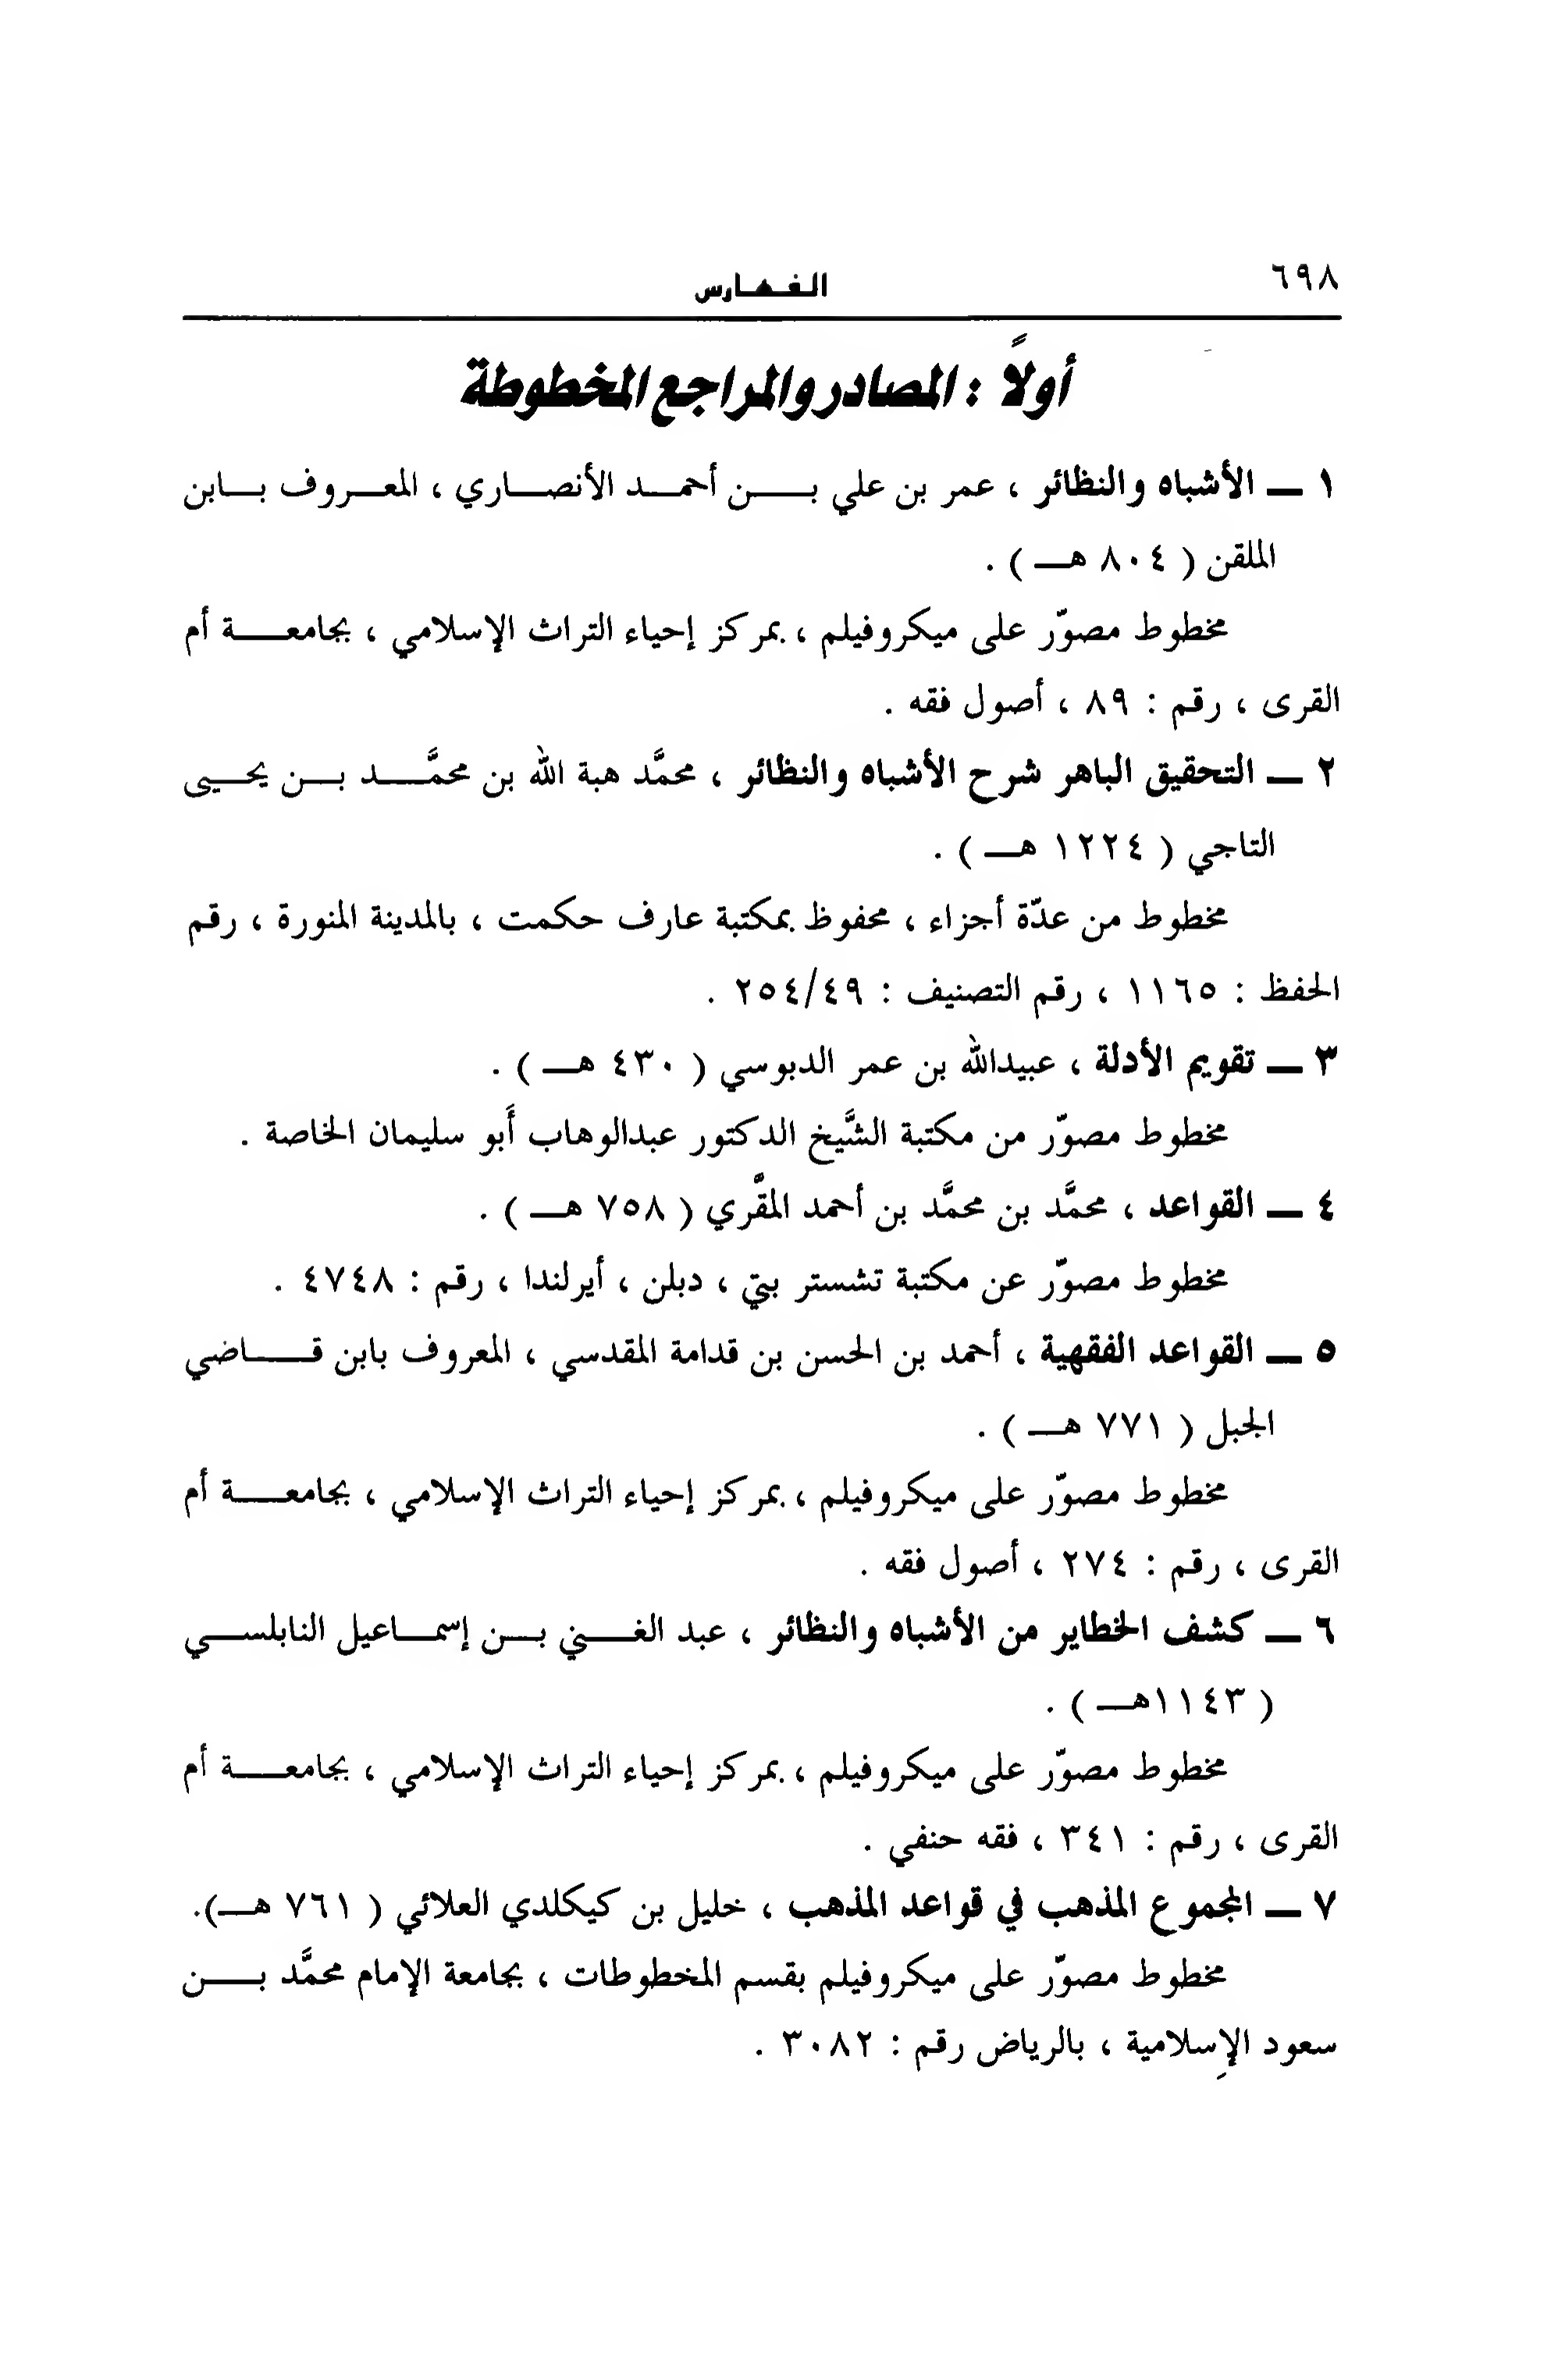 ٦٩٨
الفهارس
أولاً : المصادر والمراجع المخطوطة
١ ــ الأشباه والنظائر ، عمر بن علي بــن أحمــد الأنصــاري ، المعــروف بــابن
الملقن ( ٨٠٤ هــ ) .
مخطوط مصوّر على ميكروفيلم ، بمركز إحياء التراث الإسلامي ، بجامعــة أم
القرى ، رقم : ٨٩ ، أصول فقه .
٢ ــ التحقيق الباهر شرح الأشباه والنظائر ، محمَّد هبة الله بن محمَّــد بــن يحــيى
التاجي ( ١٢٢٤ هــ ) .
مخطوط من عدّة أجزاء ، محفوظ بمكتبة عارف حكمت ، بالمدينة المنورة ، رقم
الحفظ : ١١٦٥ ، رقم التصنيف : ٢٥٤/٤٩ .
٣ ــ تقويم الأدلة ، عبيدالله بن عمر الدبوسي ( ٤٣٠ هــ ) .
مخطوط مصوّر من مكتبة الشَّيخ الدكتور عبدالوهاب أَبو سليمان الخاصة .
٤ ــ القواعد ، محمَّد بن محمَّد بن أحمد المقَّري ( ٧٥٨ هــ ) .
مخطوط مصوّر عن مكتبة تشستر بتي ، دبلن ، أيرلندا ، رقم : ٤٧٤٨ .
٥ ــ القواعد الفقهية ، أحمد بن الحسن بن قدامة المقدسي ، المعروف بابن قــاضي
الجبل ( ٧٧١ هــ ) .
مخطوط مصوّر على ميكروفيلم ، بمركز إحياء التراث الإسلامي ، بجامعــة أم
القرى ، رقم : ٢٧٤ ، أصول فقه .
٦ ــ كشف الخطاير من الأشباه والنظائر ، عبد الغــني بــن إسمــاعيل النابلســي
( ١١٤٣هــ ) .
مخطوط مصوّر على ميكروفيلم ، بمركز إحياء التراث الإسلامي ، بجامعــة أم
القرى ، رقم : ٣٤١ ، فقه حنفي .
٧ ــ المجموع المذهب في قواعد المذهب ، خليل بن كيكلدي العلائي ( ٧٦١ هــ).
مخطوط مصوّر على ميكروفيلم بقسم المخطوطات ، بجامعة الإمام محمَّد بــن
سعود الإسلامية ، بالرياض رقم : ٣٠٨٢ .